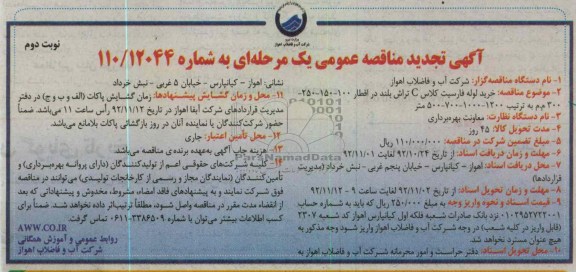 نوبت دوم
شرکت آب و فاضلاب اهواز
آگهی تجدید مناقصه عمومی یک مرحله‌ای به شماره ۱۱۰/۱۲۰۴۴
۱- نام دستگاه مناقصه‌گزار: شرکت آب و فاضلاب اهواز
۲- موضوع مناقصه: خرید لوله فارسیت کلاس C تراش بلند در اقطار ۱۰۰-۱۵۰-۲۵۰-
۳۰۰ م.م به ترتیب ۱۲۰۰-۱۰۰۰-۷۰۰-۵۰۰ متر
۳- نام دستگاه نظارت: معاونت بهره‌برداری
۴- مدت تحویل کالا: ۴۵ روز
۵- مبلغ تضمین شرکت در مناقصه: ۱۱۰/۰۰۰/۰۰۰ ریال
۶- مهلت و زمان دریافت اسناد: از تاریخ ۹۲/۱۰/۲۴ لغایت ۹۲/۱۱/۰۱
۷- محل دریافت اسناد: اهواز - کیانپارس - خیابان پنجم غربی - نبش خرداد (مدیریت
قراردادها)
۸- مهلت و زمان تحویل اسناد: از تاریخ ۹۲/۱۱/۰۲ لغایت ساعت ۹ - ۹۲/۱۱/۱۲
۹- قیمت اسناد و نحوه واریز وجه به مبلغ ۲۵۰/۰۰۰ ریال که باید به شماره حساب
۰۱۰۲۹۵۲۷۲۲۰۰۱ نزد بانک صادرات شعبه فلکه اول کیانپارس اهواز کد شعبه ۲۳۰۷
(قابل واریز در کلیه شعب) در وجه شرکت آب و فاضلاب اهواز واریز شود وجه مذکور به
هیچ عنوان مسترد نخواهد شد.
۱۰- محل تحویل اسناد: دفتر حراست و امور محرمانه شرکت آب و فاضلاب اهواز به
نشانی: اهواز - کیانپارس - خیابان ۵ غربی - نبش خرداد
۱۱- محل و زمان گشایش پیشنهادها: زمان گشایش پاکات (الف و ب و ج) در دفتر
مدیریت قراردادهای شرکت آبفا اهواز در تاریخ ۹۲/۱۱/۱۲ رأس ساعت ۱۱ می‌باشد. ضمناً
حضور شرکت‌کنندگان یا نماینده آنان در روز بازگشائی پاکات بلامانع می‌باشد.
۱۲- محل تأمین اعتبار: جاری
۱۳- هزینه چاپ آگهی به‌عهده برنده‌ی مناقصه می‌باشد.
۱۴- کلیه شرکت‌های حقوقی اعم از تولیدکنندگان (دارای پروانه بهره‌برداری) و
تأمین‌کنندگان (نمایندگان مجاز و رسمی از کارخانجات تولیدی) می‌توانند در مناقصه
فوق شرکت نمایند و به پیشنهادهای فاقد امضاء، مشروط، مخدوش و پیشنهاداتی که بعد
از انقضاء مدت مقرر در مناقصه واصل شود، مطلقاً ترتیب‌اثر داده نخواهد شد. ضمناً برای
کسب اطلاعات بیشتر می‌توان با شماره ۳۳۸۶۵۰۹-۰۶۱۱ تماس گرفت.
AWW.CO.IR
روابط عمومی و آموزش همگانی
شرکت آب و فاضلاب اهواز
ParsNamadData